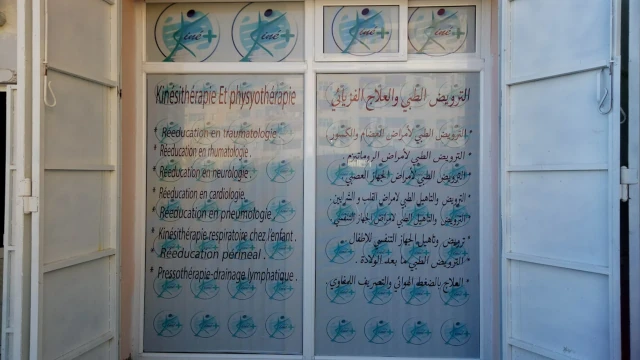 Kiné+
Kiné+
Kiné+
Kiné+
Kinésithérapie Et physyothérapie
* Rééducation en traumatologie.
* Rééducation en rhumatologie.
* Rééducation en neurologie.
* Rééducation en cardiologie.
* Rééducation en pneumologie.
* Kinésithérapie respiratoire chez l'enfant.
* Rééducation périneal.
* Pressothérapie-drainage lymphatique.
الترويض الطبي والعلاج الفزيائي
الترويض الطبي لأمراض العضام والكسور.
الترويض الطبي لأمراض الروماتيزم.
الترويض الطبي لأمراض الجهاز العصبي.
الترويض والتاهيل الطبي لامراض القلب و الشرايين.
الترويض والتأهيل الطبي لأمراض الجهاز التنفسي.
* ترويض وتاهيل الجهاز التنفسي للاطفال.
* الترويض الطبي ما بعد الولادة.
* العلاج بالضغط الهوائي والتصريف اللمفاوي.